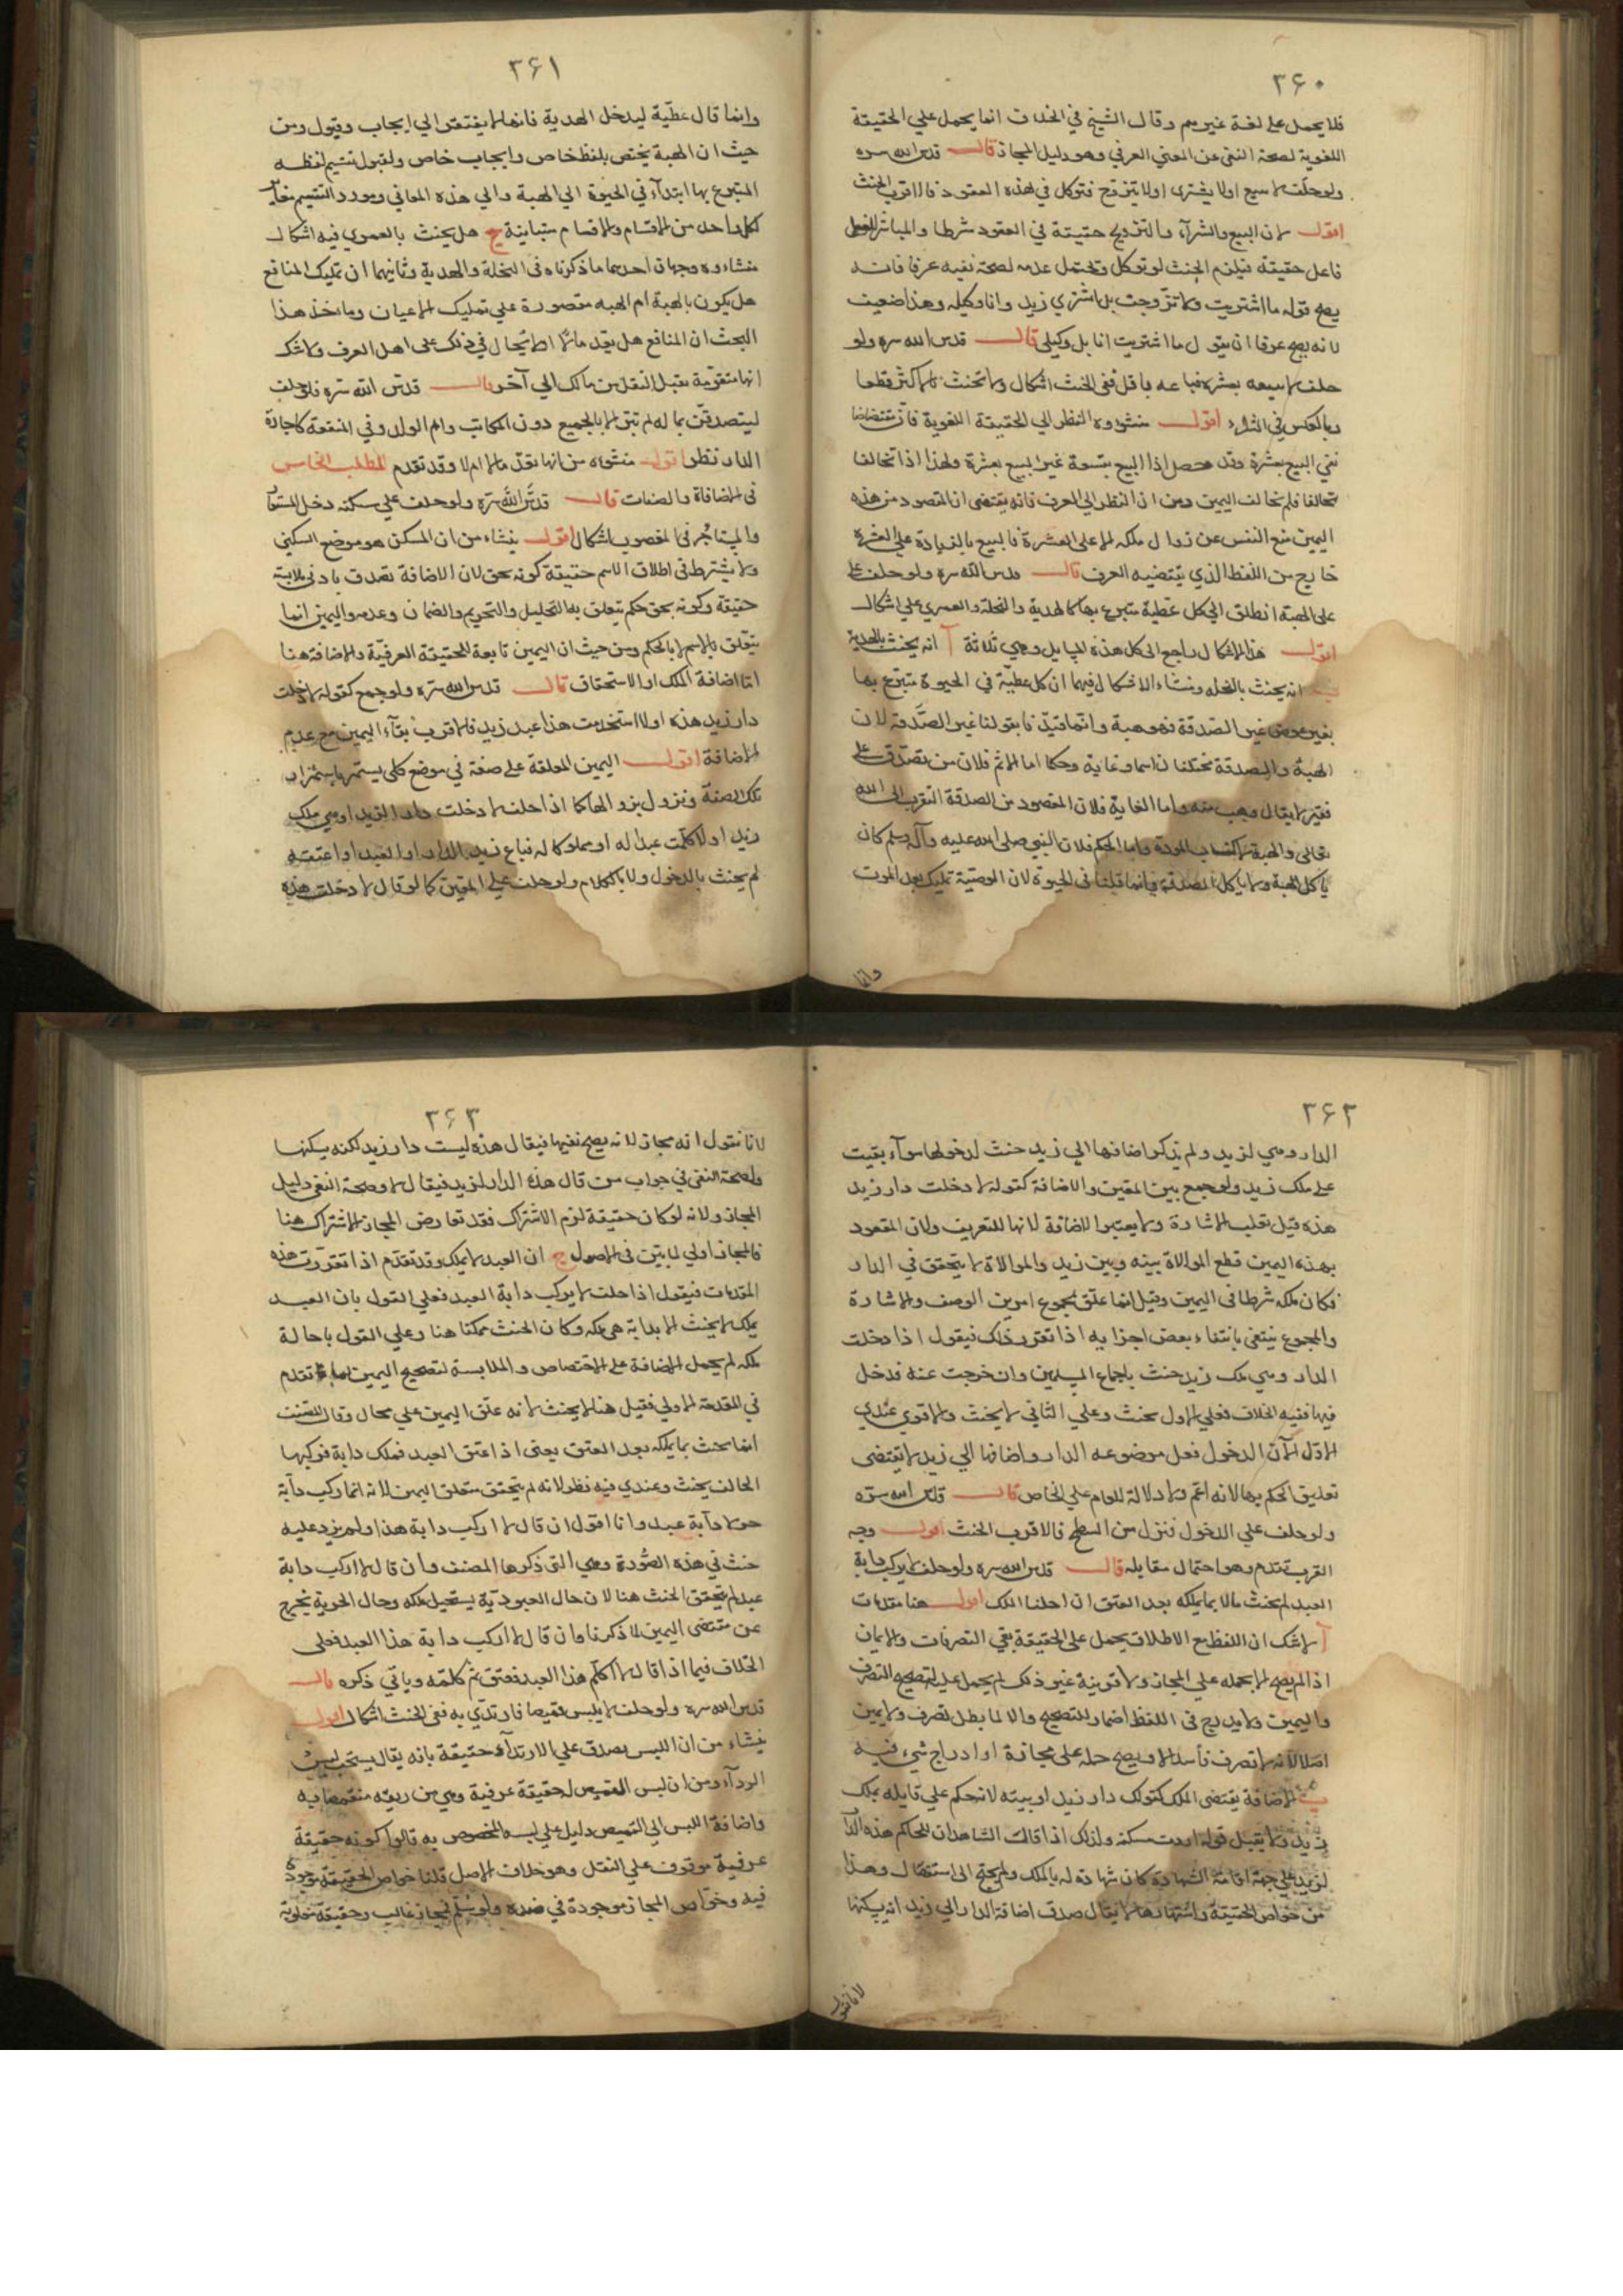 ۳۶۰
فلا يحمل على لغة غيرهم وقال الشيخ في الخلاف انما يحمل علي الحقيقة
اللغوية لصحة النفى عن المعني العرفي وهو دليل المجاز قال قدس الله سره
ولو حلف لا يبيع اولا يشترى اولا يتزوج فتوكل في هذه العقود فالاقرب الحنث
اقول لان البيع والشرآء والتزويج حقيقة في العقود شرطا والمباشر للفعل
فاعل حقيقة فيلزم الحنث لو توكل ويحتمل عدمه لصحة نفيه عرفا فانه
يصح قوله ما اشتريت ولا تزوجت بل اشترى زيد وانا وكيله وهذا ضعيف
لانه يصح عرفا ان يقول ما اشتريت انا بل وكيلي قال قدس الله سره ولو
حلف لا يبيعه بعشرة فباعه باقل ففي الحنث اشكال ولا يحنث بالاكثر قطعا
وبالعكس في الشراء اقول منشؤه النظر الي الحقيقة اللغوية فان مقتضاها
نفي البيع بعشرة وقد حصل اذا البيع بتسعة غير البيع بعشرة ولهذا اذا تخالفا
تحالفا فلم يخالف اليمين ومن ان النظر الي العرف فانه يقتضى ان المقصود من هذه
اليمين منع النفس عن زوال ملكه الا على العشرة فالبيع بالزيادة علي العشرة
خارج من اللفظ الذي يقتضيه العرف قال قدس الله سره ولو حلف على
على الهبة انطلق الى كل عطية متبرع بها كالهدية والنحلة والعمرى علي اشكال
اقول هذا الاشكال راجع الى كل هذه المسايل وهي ثلاثة آ انه يحنث بالهدية
ب انه يحنث بالنحله ومنشاء الاشكال فيهما ان كل عطيّة في الحيوة متبرع بها
بغير عوض غير الصدقة فهو هبة وانما قيّدنا بقولنا غير الصّدقة لان
الهبة والصدقة تختلفان اسما وغاية وحكما اما الاسم فلان من تصدق على
فقير لا يقال وهب منه واما الغاية فلان المقصود من الصدقة التقرب الى الله
تعالى والهبة لاكتساب المودة واما الحكم فلان النبي صلى الله عليه وآله وسلم كان
ياكل الهبة ولا ياكل الصدقة وانما قلنا في الحيوة لان الوصية تمليك بعد الموت
وانما
۳۶۱
وانما قال عطيّة ليدخل الهدية فانها لا يفتقر الي ايجاب وقبول ومن
حيث ان الهبة يختص بلفظ خاص وايجاب خاص ولقبول تقسيم لفظه
المتبرع بها ابتدآء في الحيوة الي الهبة والي هذه المعاني ومورد التقسيم مغاير
لكل واحد من الاقسام والاقسام متباينة ج هل يحنث بالعمري فيه اشكال
منشاءوه وجهان احدهما ما ذكرناه في النحلة والهدية وثانيهما ان تمليك المنافع
هل يكون بالهبة ام الهبه مقصورة علي تمليك الاعيان وماخذ هذا
البحث ان المنافع هل يعد مالا ام لا يحال في ذلك على اهل العرف ولا شك
انها متقوّمة يقبل النقل من مالك الي آخر قال قدس الله سره فلو حلف
ليتصدقن بماله لم تبرّ الا بالجميع دون المكاتب وام الولد وفي المنفعة كاجارة
الدار نظر اقول منشؤه من انها تعدّ مالا ام لا وقد تقدم المطلب الخامس
في الاضافاة والصفات قال قدس الله سره ولو حلف علي سكنه دخل المستعار
والمستاجر وفي المغصوب اشكال اقول ينشاء من ان المسكن هو موضع السكني
ولا يشترط في اطلاق الاسم حقيقة كونه بحق لان الاضافة تصدق بادنى ملابسة
حقيقة وكونه بحق حكم يتعلق به التحليل والتحريم والضمان وعدمه واليمين انما
يتعلق بالاسم لا بالحكم ومن حيث ان اليمين تابعة للحقيقة العرفيّة والاضافة هنا
اما اضافة الملك او الاستحقاق قال قدس الله سره ولو جمع كقوله لا دخلت
دار زيد هذه اولا استخدمت هذا عبد زيد فالاقرب بقآء اليمين مع عدم
الاضافة اقول اليمين المعلقة على صفة في موضع كلي يستمر باستمرار
تلك الصفة وتزول بزوالها كما اذا حلف لا دخلت دارا لزيد او هي ملك
زيد اولا كلمت عبدا له او مملوكا له فباع زيد الدار او العبد او اعتقه
لم يحنث بالدخول ولا بالكلام ولو حلف على المعين كما لو قال لا دخلت هذه
۳۶۲
الدار وهي لزيد ولم يذكر اضافتها الي زيد حنث لدخولها سوآء بقيت
على ملك زيد ولو جمع بين المعين والاضافة كقوله لا دخلت دار زيد
هذه قيل تغلب الاشارة ولا يعتبر الاضافة لانها للتعريف ولان المقصود
بهذه اليمين قطع الموالاة بينه وبين زيد والموالاة لا يتحقق في الدار
فكان ملكه شرطا في اليمين وقيل انما علق بمجموع امرين الوصف والاشارة
والمجموع ينتفى بانتفاء بعض اجزايه اذا تقرر ذلك فيقول اذا دخلت
الدار وهي ملك زيد حنث باجماع المسلمين وان خرجت عنه فدخل
فيها ففيه الخلاف فعلي الاول يحنث وعلي الثاني لا يحنث والاقوي عندي
الاول لان الدخول فعل موضوعه الدار واضافتها الي زيد لا يقتضى
تعليق الحكم بها لانه اعم ولا دلالة للعام علي الخاص قال قدس الله سره
ولو حلف علي الدخول فنزل من السطح فالاقرب الحنث اقول وجه
القرب تقدم وهو احتمال مقابله قال قدس الله سره ولو حلف لا يركب دابة
العبد لم يحنث مالا بما يملكه بعد العتق ان احلنا الملك اقول هنا مقدمات
آ لا شك ان اللفظ مع الاطلاق يحمل على الحقيقة بقي التصرفات والايمان
اذا لم يصح الا بحمله علي المجاز ولا قرينة غير ذلك لم يحمل عليه لتصحيح التصرف
واليمين ولا يدرج في اللفظ اضمار للتصحيح والا لما بطل تصرف ولا يمين
اصلا لانه لا تصرف فاسد الا ويصح حمله على مجازة او ادراج شيء فيه
ب الاضافة يقتضى الملك كقولك دار زيد او بيته لانحكم علي قايله بملك
زيد ولا يقبل قوله اردت مسكنه ولذلك اذا قالت الشاهدان للحاكم هذه الدار
لزيد علي جهة اقامة الشهادة كان شهادة له بالملك ولم يحتج الى استفصال وهذا
من خواص الحقيقة واشتهارها لا يقال صدق اضافة الدار الي زيد انه يسكنها
لانا نقول
۳۶۳
لانا نقول انه مجاز لانه يصح نفيها فيقال هذه ليست دار زيد لكنه يسكنها
ولصحة النفي في جواب من قال هذه الدار لزيد فيقال لا وصحة النفي دليل
المجاز ولانه لو كان حقيقة لزم الاشتراك فقد تعارض المجاز والاشتراك هنا
فالمجاز اولي لما بيّن في الاصول ج ان العبد لا يملك وقد تقدّم اذا تقررت هذه
المقدمات فيقول اذا حلف لا يركب دابة العبد فعلي القول بان العبد
يملك لا يحنث الا بدابة هي ملكه وكان الحنث ممكنا هنا وعلي القول باحالة
ملكه لم يحمل الاضافة على الاختصاص والملابسة لتصحيح اليمين لما تقدم
في المقدمة الاولي فقيل هنا لا يحنث لانه علق اليمين علي محال وقال المصنف
انما يحنث بما يملكه بعد العتق يعني اذا عتق العبد فملك دابة فركبها
الحالف يحنث وعندي فيه نظر لانه لم يتحقق متعلق اليمين لانه انما ركب دآبة
حر لا دآبة عبد وانا اقول ان قال لا اركب دابة هذا ولم يزد عليه
حنث في هذه الصّورة وهي التي ذكرها المصنف وان قال لا اركب دابة
عبد لم يتحقق الحنث هنا لان حال العبوديّة يستحيل ملكه وحال الحرية يخرج
عن مقتضى اليمين لما ذكرنا وان قال لا اركب دابة هذا العبد فعلى
الخلاف فيما اذا قال لا اكلم هذا العبد فعتق ثم كلمه وياتي ذكره قال
قدس الله سره ولو حلف لا يلبس قميصا فارتدّي به ففي الحنث اشكال اقول
ينشاء من ان اللبس يصدق علي الارتدآء حقيقة بانه يقال يستحب لبس
الردآء ومن ان لبس القميص له حقيقة عرفية وهي من ريقه منقمصا به
واضافة اللبس الي القميص دليل علي لبسه المخصوص به قالوا كونه حقيقة
عرفية موقوف علي النقل وهو خلاف الاصل قلنا خواص الحقيقة موجودة
فيه وخواص المجاز موجودة في ضده ولو سلم فمجاز غالب وحقيقة مغلوبة